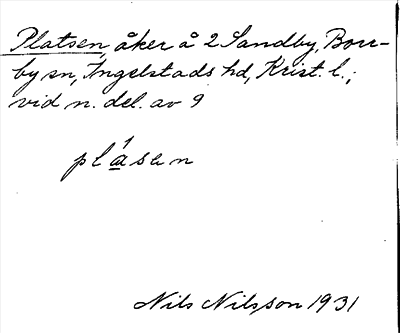 Platsen, åker å 2 Sandby, Borr-
by sn, Ingelstads hd, Krist. l.;
vid n. del. av 9
plásen
Nils Nilsson 1931